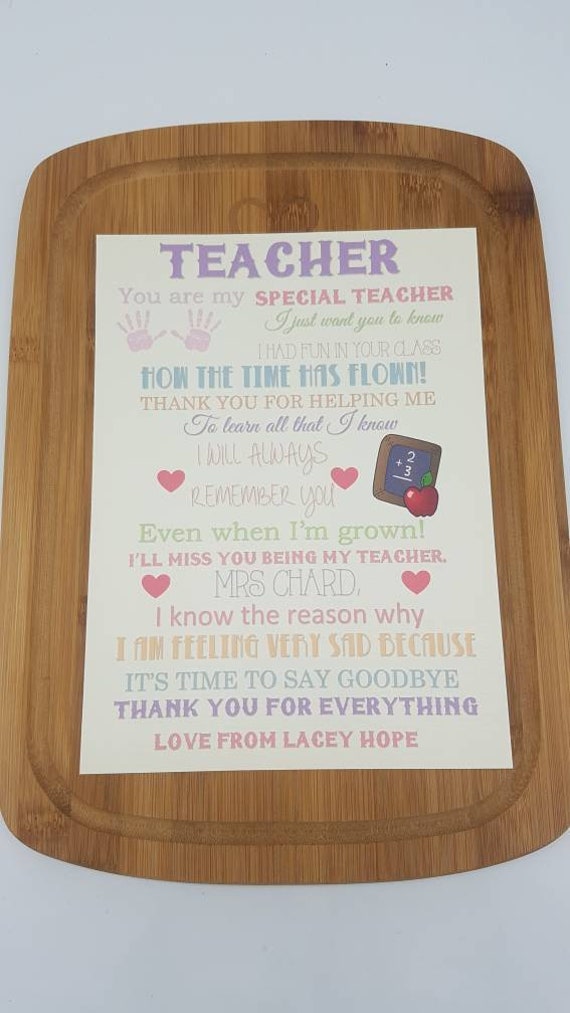 TEACHER
You are my SPECIAL TEACHER
I just want you to know
I HAD FUN IN YOUR CLASS
HOW THE TIME HAS FLOWN!
THANK YOU FOR HELPING ME
To learn all that I know
I WILL ALWAYS
REMEMBER YOU
+ 2
3
Even when I'm grown!
I'LL MISS YOU BEING MY TEACHER.
MRS CHARD,
I know the reason why
I AM FEELING VERY SAD BECAUSE
IT'S TIME TO SAY GOODBYE
THANK YOU FOR EVERYTHING
LOVE FROM LACEY HOPE